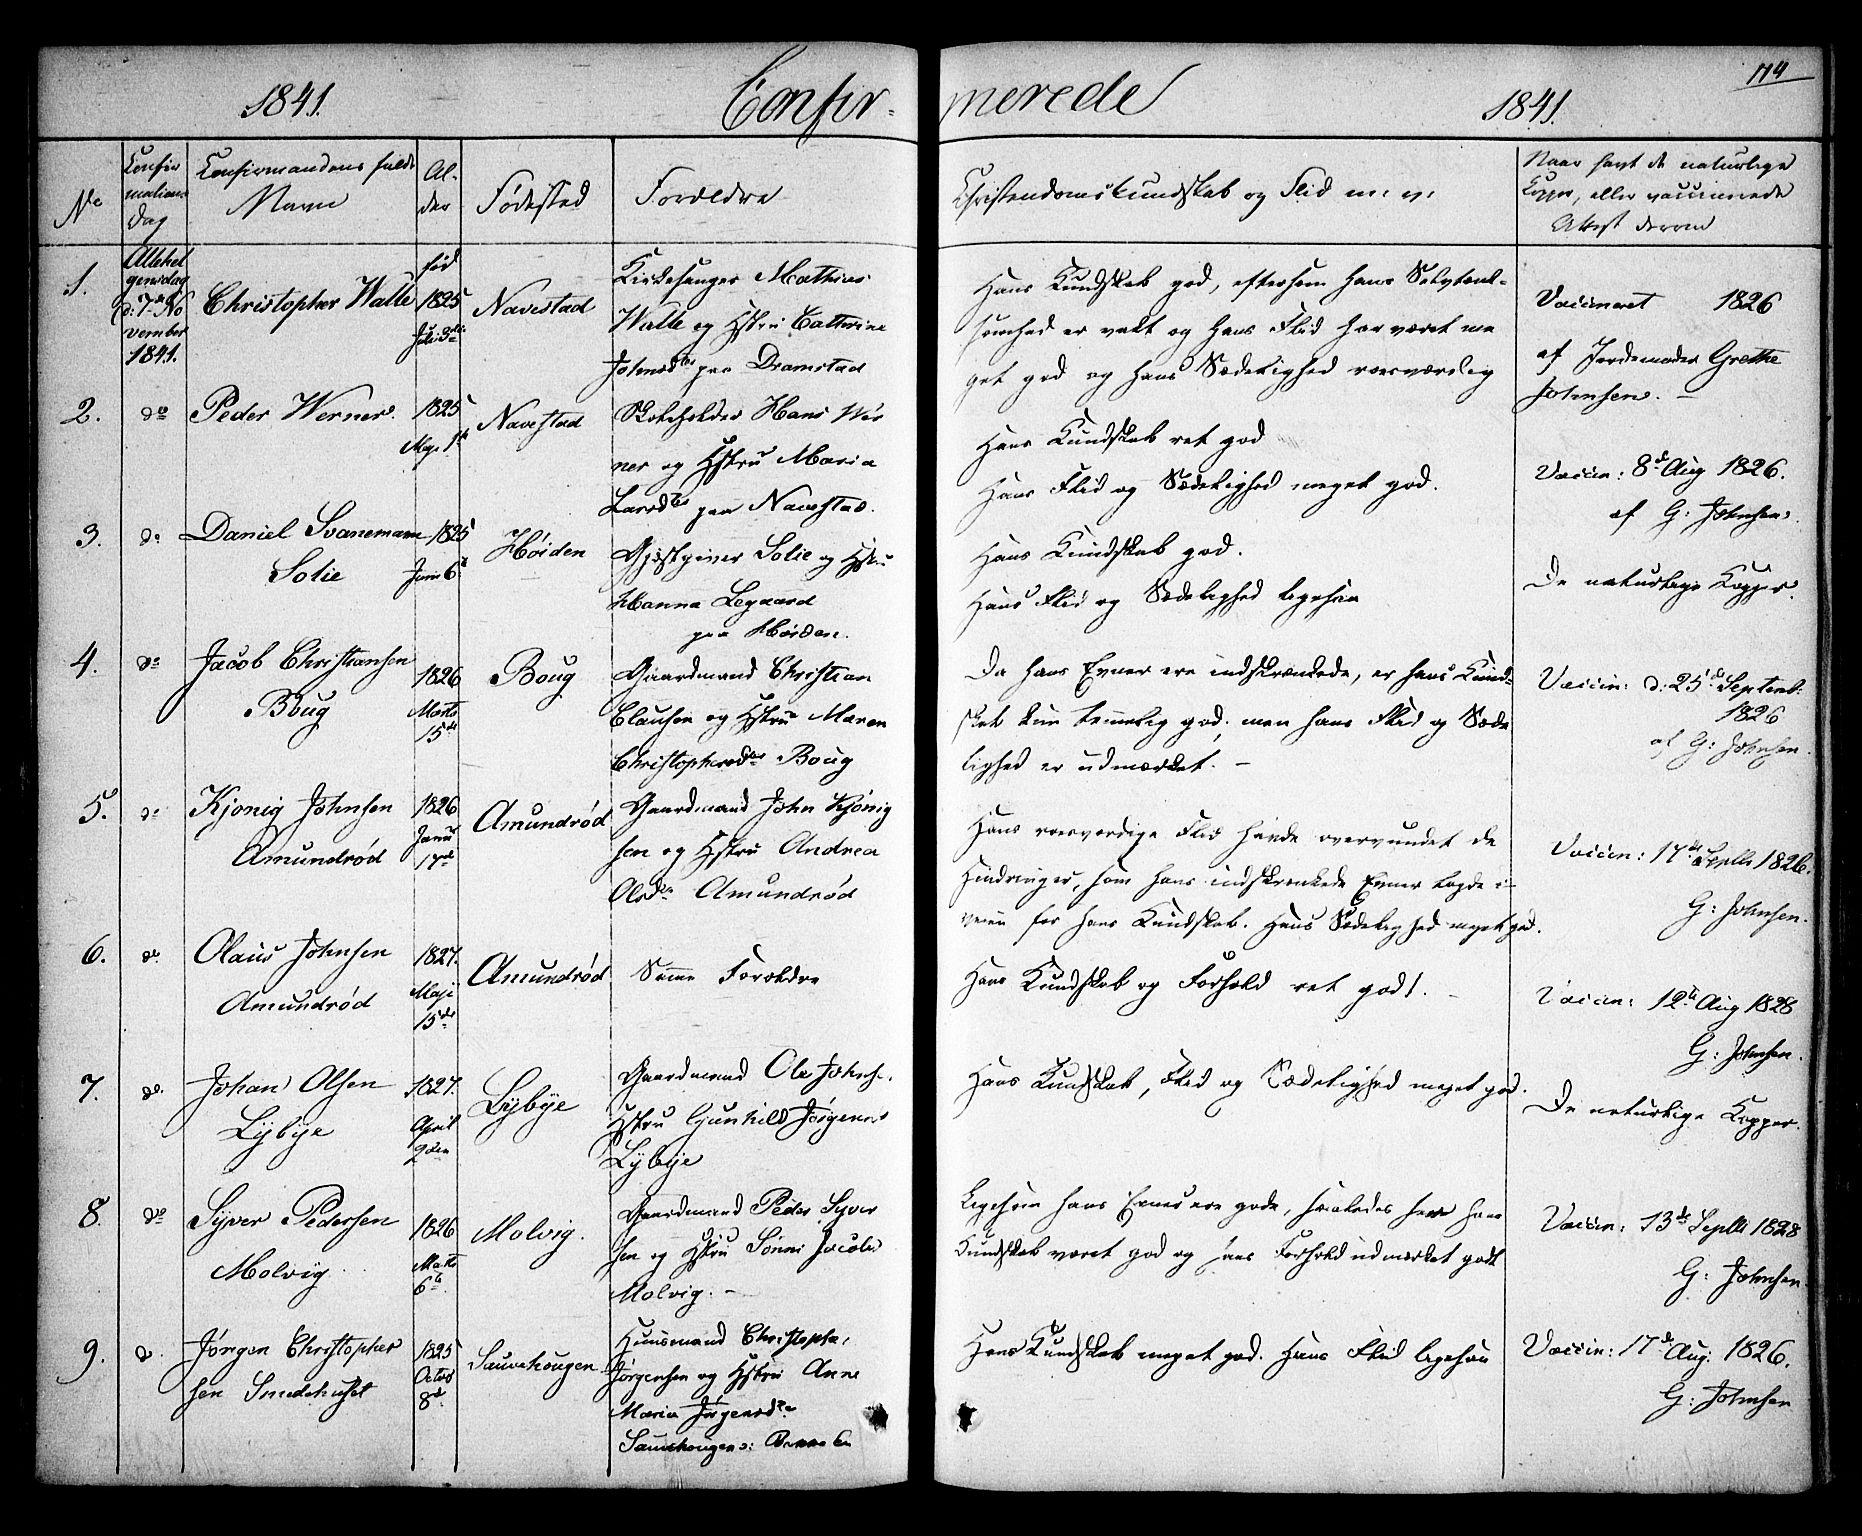 114
1841.
Confir-
merede
1841.
No
Confir
mations
Dag
Confirmandens fulde
Navn
Al-
der
Fødested
Forældre
Christendomskundskab og Flid m. v.
Naar havt de naturlige
Kopper, eller vaccinerede
Attest derom
1.
Allehel
gensdag
d: 7de No
vember
1841.
Christopher Walle
fød
1825
Navestad
Kirkesanger Mathias
Walle og Hstru Cathrine
Johnsdtr paa Dramstad
Hans Kundskab god, eftersom hans Selvtænk-
somhed er vakt og hans Flid har været me
get god og hans Sædelighed roesværdig
Vaccineret 1826
af Jordemoder Grethe
Johnsen. -
2.
do
Peder Werner.
1825
Maji 1ste
Navestad
Skoleholder Hans Wer
ner og Hstru Maria
Larsdtr paa Navestad.
Hans Kundskab ret god
Hans Flid og Sædelighed meget god.
Vaccin: 8de Aug 1826.
af G: Johnsen.
3.
do
Daniel Svanemann
Solie
1825
Juni 6te
Høiden
Gjestgiver Solie og Hstru
Hanna Legaard
paa Høiden.
Hans Kundskab god.
Hans Flid og Sædelighed ligesaa
De naturlige Kopper.
4.
do
Jacob Christiansen
Boug
1826
Marts
15de
Boug
Gaardmand Christian
Clausen og Hstru Maren
Christophersdtr Boug
Da hans Evner ere indskrænkede, er hans Kund-
skab kun temmelig god; men hans Flid og Sæde
lighed er udmærket. -
Vaccin: d: 25de Septemb:
1826
af G: Johnsen.
5.
do
Kjønig Johnsen
Amundrød
1826
Janu
17de
Amundrød
Gaardmand John Kjønig
sen og Hstru Andrea
Olsdtr Amundrød
Hans roesværdige Flid havde overvundet de
Hindringer, som hans indskrænkede Evner lagde i-
veien for hans Kundskab. Hans Sædelighed meget god.
Vaccin: 17de Septbr 1826.
G: Johnsen.
6.
do
Olaus Johnsen
Amundrød
1827.
Maji
15de
Amundrød
Samme Forældre
Hans Kundskab og Forhold ret godt. -
Vaccin: 12te Aug 1828
G: Johnsen.
7.
do.
Johan Olsen
Lybye
1827.
April
9den
Lybye
Gaardmand Ole Johns.
Hstru Gunhild Jørgens
Lybye
Hans Kundskab, Flid og Sædelighed meget god.
De naturlige Kopper.
8.
do
Syver Pedersen
Molvig
1826
Marts
6te
Molvig.
Gaardmand Peder Syver
sen og Hstru Sønni Jacobs
Molvig. -
Ligesom hans Evner ere gode, saaledes har hans
Kundskab været god og hans Forhold udmærket godt
Vaccin: 13de Septbr 1828
G: Johnsen.
9.
do.
Jørgen Christopher
sen Smedehuset
1825
Octob
8de
Sauvehougen
Huusmand Christopher
Jørgensen og Hstru Anne
Maria Jørgensdtr
Sauvehougen
Hans Kundskab meget god. Hans Flid ligesaa
Vaccin: 17de Aug: 1826.
G: Johnsen